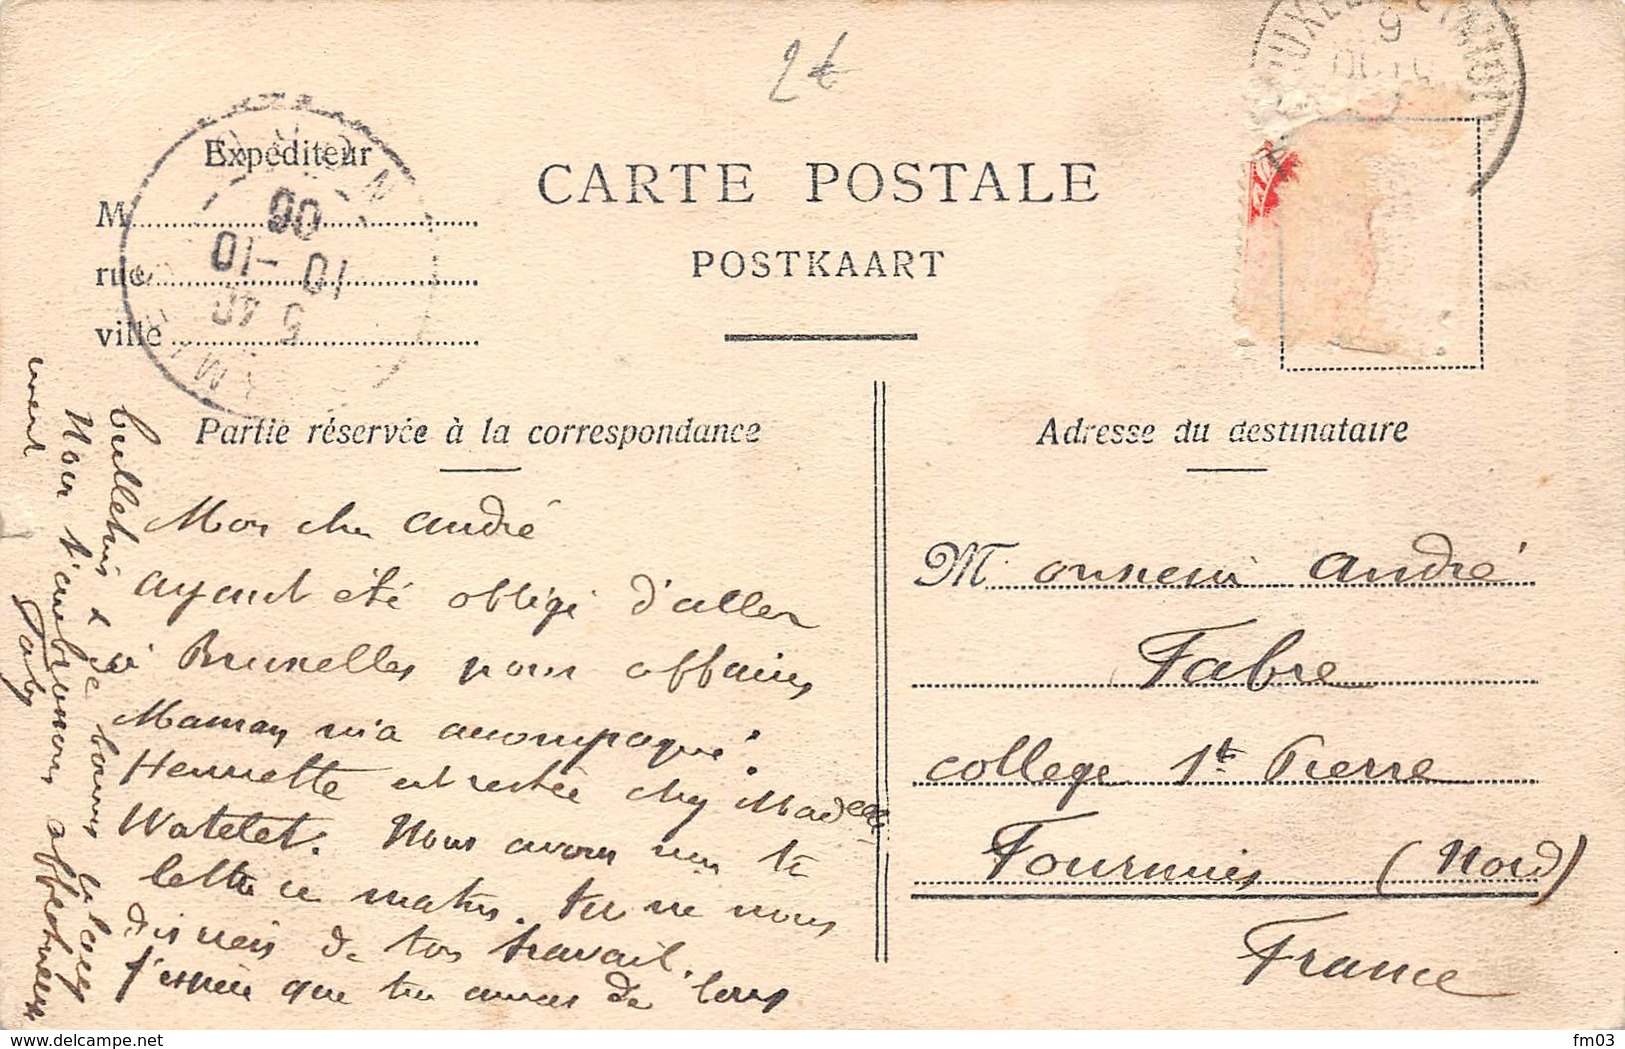 2€
Expéditeur
M
rue
ville
06
10 - 10
5 40
CARTE POSTALE
POSTKAART
9
Partie réservée à la correspondance
Adresse du destinataire
Mon cher andré
ayant été obligé d'aller
à Bruxelles pour affaires
Maman m'a accompagné.
Henriette est restée chez Madelle
Watelet. Nous avons reçu ta
lettre ce matin. tu ne nous
dis rien de ton travail.
J'espère que tu auras de bons
bulletins & de bonnes places
Nous t'embrassons affectueuse
ment
Monsieur André
Fabre
college St Pierre
Fourmies (Nord)
France
delcampe.net
fm03